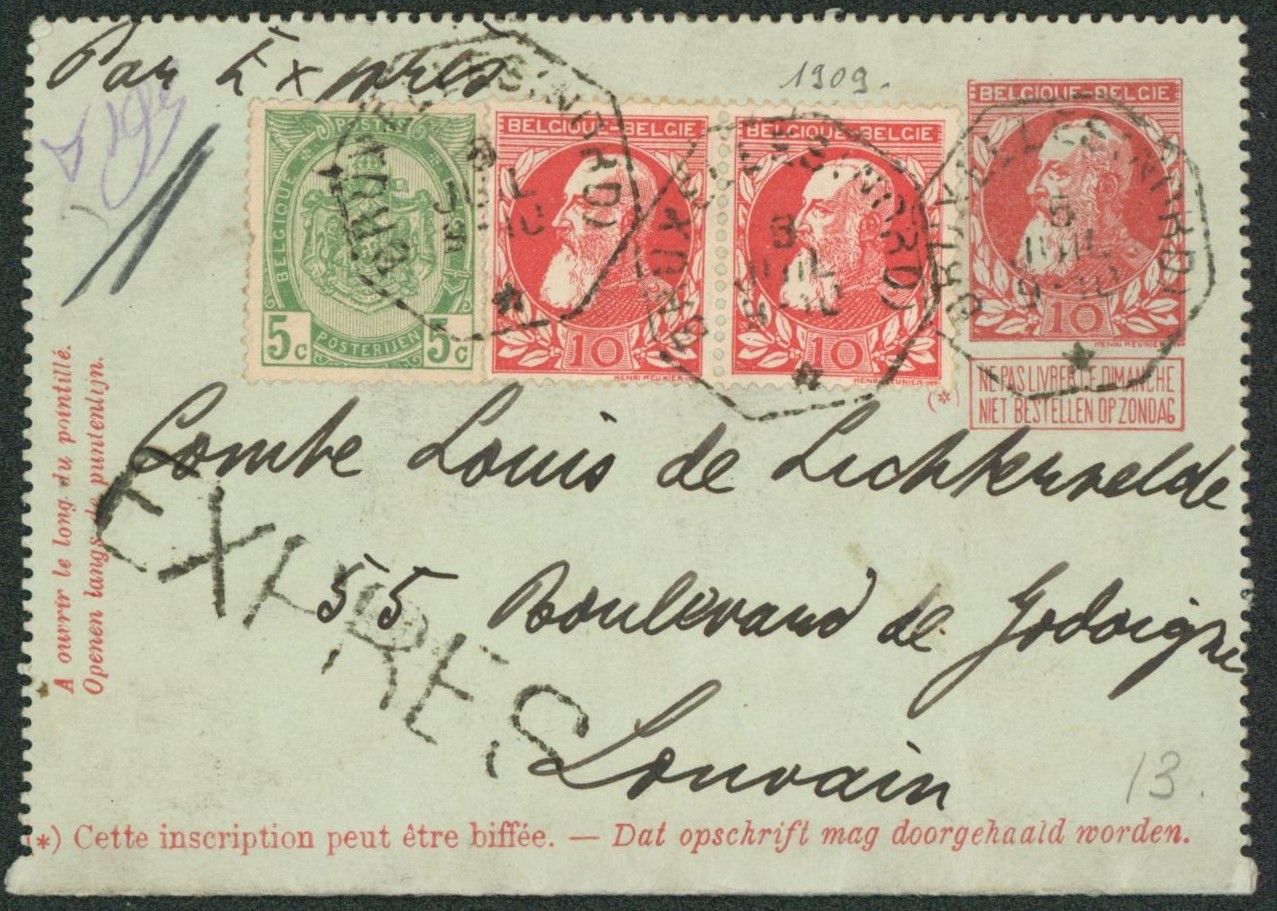 Par Exprès
1909.
BELGIQUE-BELGIE
10
NE PAS LIVRER LE DIMANCHE
NIET BESTELLEN OP ZONDAG
(*)
POSTES
BELGIQUE
5c POSTERIJEN 5c
BELGIQUE-BELGIE
10
HENRI MEUNIER
BELGIQUE-BELGIE
10
HENRI MEUNIER
BRUXELLES (NORD)
JUIL
BRUXELLES (NORD)
JUIL
BRUXELLES (NORD)
JUIL
A ouvrir le long du pointillé.
Openen langs de puntenlijn.
Comte Louis de Lichtervelde
EXPRES
55 Boulevard de Jodoigne
Louvain
13.
(*) Cette inscription peut être biffée. — Dat opschrift mag doorgehaald worden.